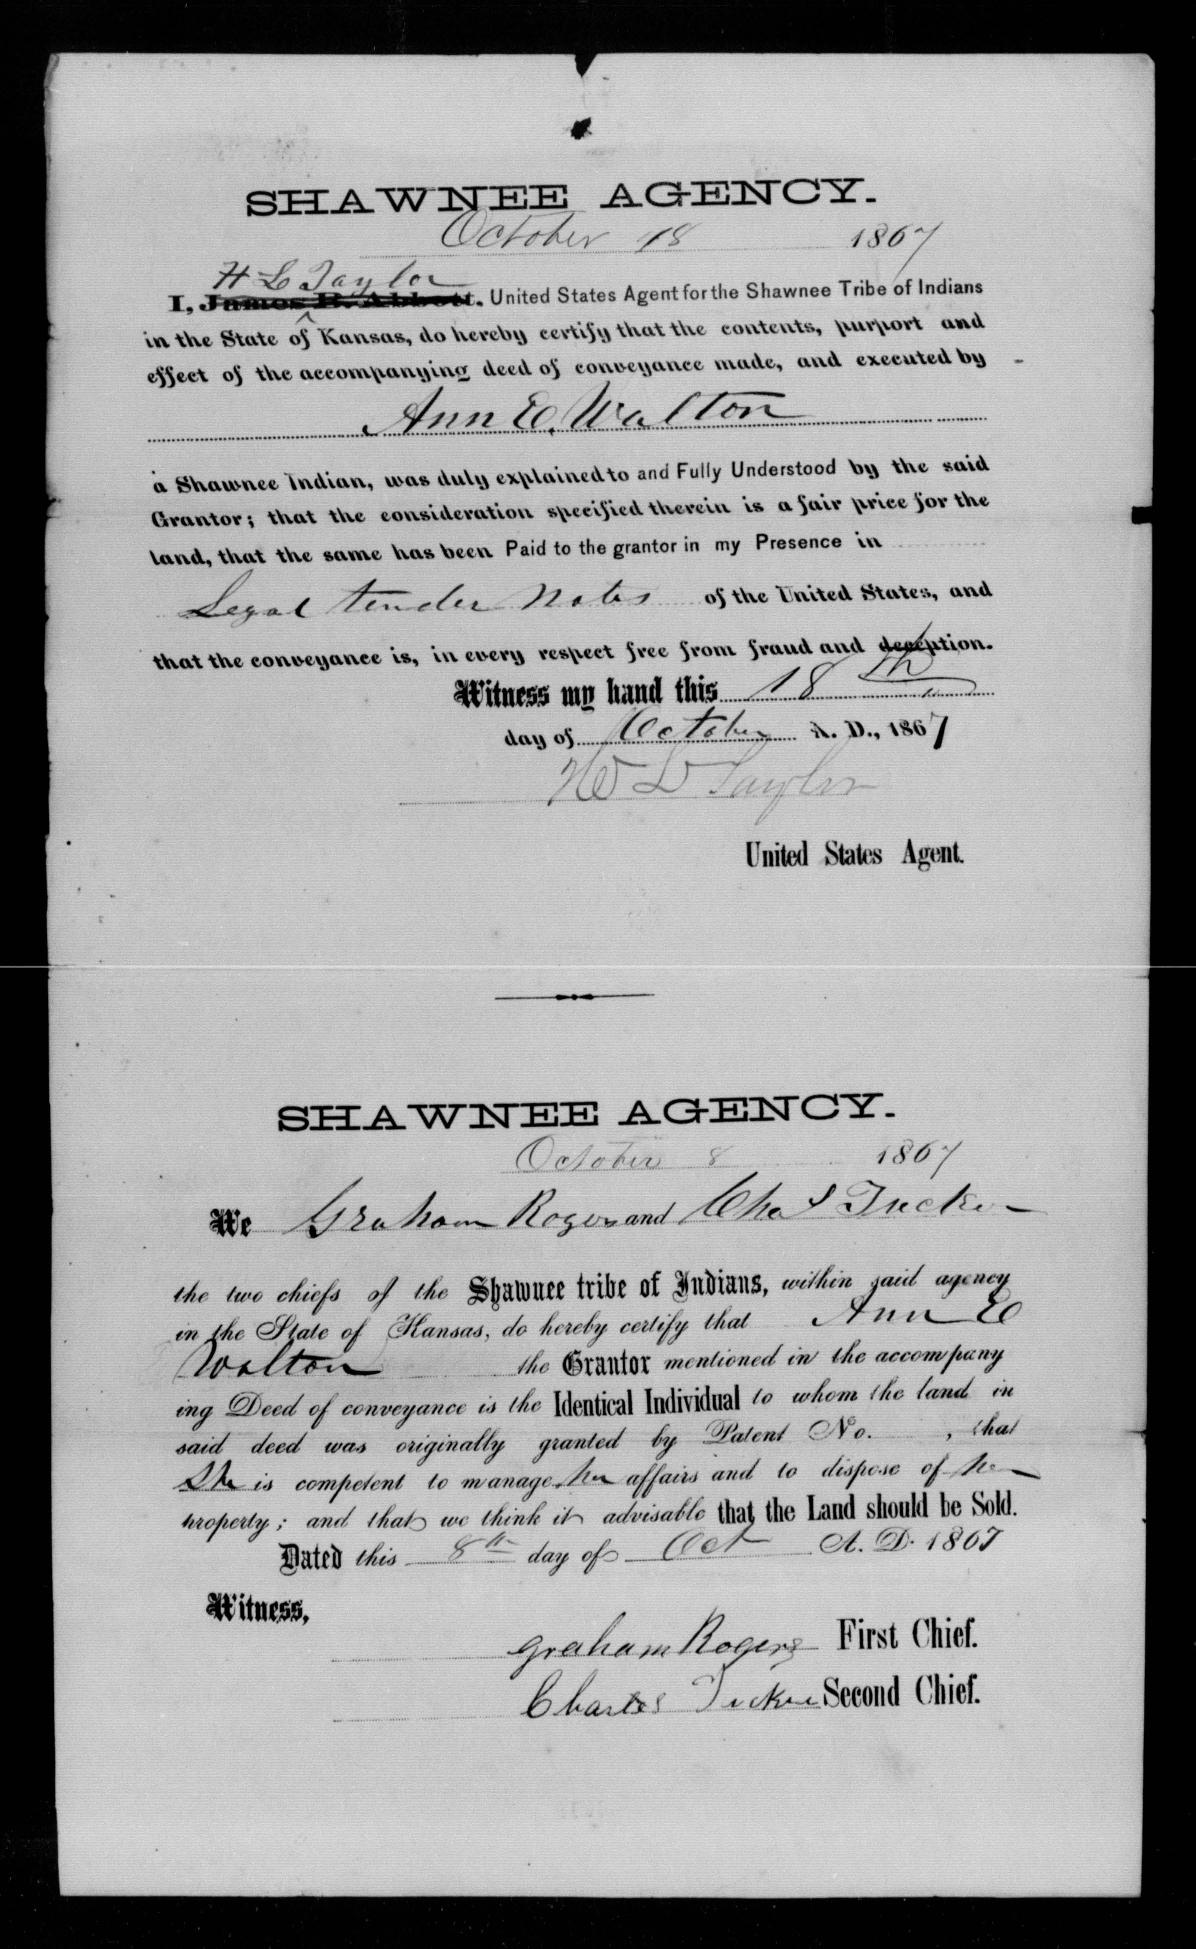 SHAWNEE AGENCY.
October 18 1867
H L Taylor
I, James B. Abbott. United States Agent for the Shawnee Tribe of Indians
in the State of Kansas, do hereby certify that the contents, purport and
effect of the accompanying deed of conveyance made, and executed by
Ann E. Walton
a Shawnee Indian, was duly explained to and Fully Understood by the said
Grantor; that the consideration specified therein is a fair price for the
land, that the same has been Paid to the grantor in my Presence in
Legal tender notes of the United States, and
that the conveyance is, in every respect free from fraud and deception.
Witness my hand this 18th
day of October A. D., 1867
H L Taylor
United States Agent.
SHAWNEE AGENCY.
October 8 1867
We Graham Rogers and Chas Tucker
the two chiefs of the Shawnee tribe of Indians, within said agency
in the State of Kansas, do hereby certify that Ann E
Walton the Grantor mentioned in the accompany
ing Deed of conveyance is the Identical Individual to whom the land in
said deed was originally granted by Patent No. , that
She is competent to manage her affairs and to dispose of her
property; and that we think it advisable that the Land should be Sold.
Dated this 8th day of Oct A. D. 1867
Witness,
Graham Rogers First Chief.
Charles Tucker Second Chief.